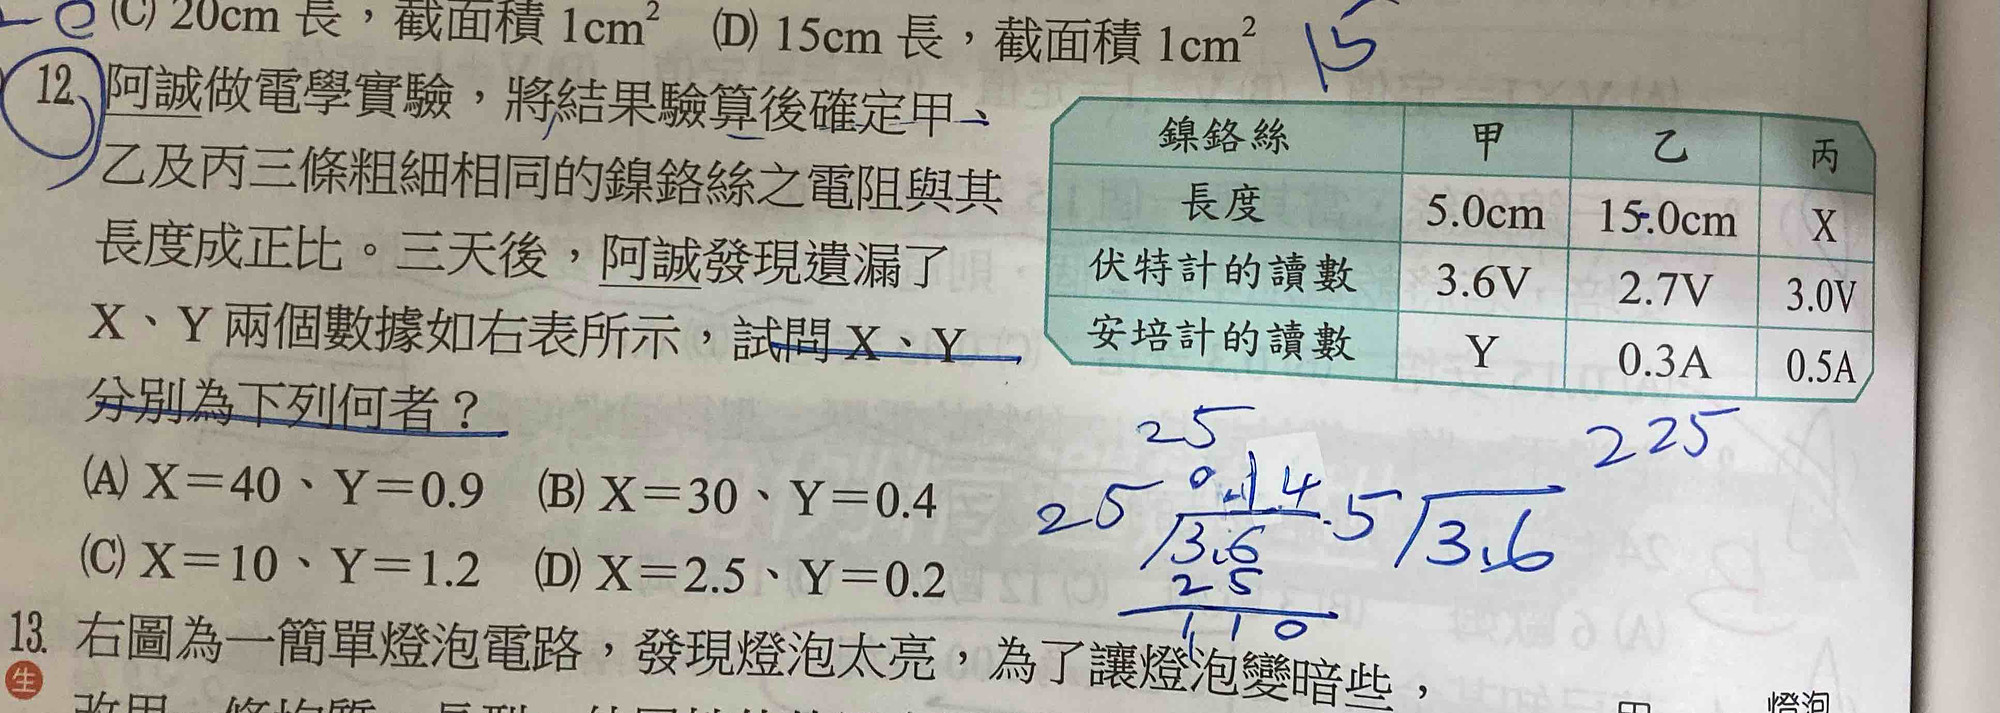 (C) 20cm 長，截面積 1cm² (D) 15cm 長，截面積 1cm²
15
12. 阿誠做電學實驗，將結果驗算後確定甲、
乙及丙三條粗細相同的鎳鉻絲之電阻與其
長度成正比。三天後，阿誠發現遺漏了
X、Y 兩個數據如右表所示，試問 X、Y
分別為下列何者？
(A) X＝40、Y＝0.9 (B) X＝30、Y＝0.4
(C) X＝10、Y＝1.2 (D) X＝2.5、Y＝0.2
鎳鉻絲 甲 乙 丙
長度 5.0cm 15.0cm X
伏特計的讀數 3.6V 2.7V 3.0V
安培計的讀數 Y 0.3A 0.5A
25
225
25 3.6
.5 3.6
25
110
13. 右圖為一簡單燈泡電路，發現燈泡太亮，為了讓燈泡變暗些，
生
燈泡